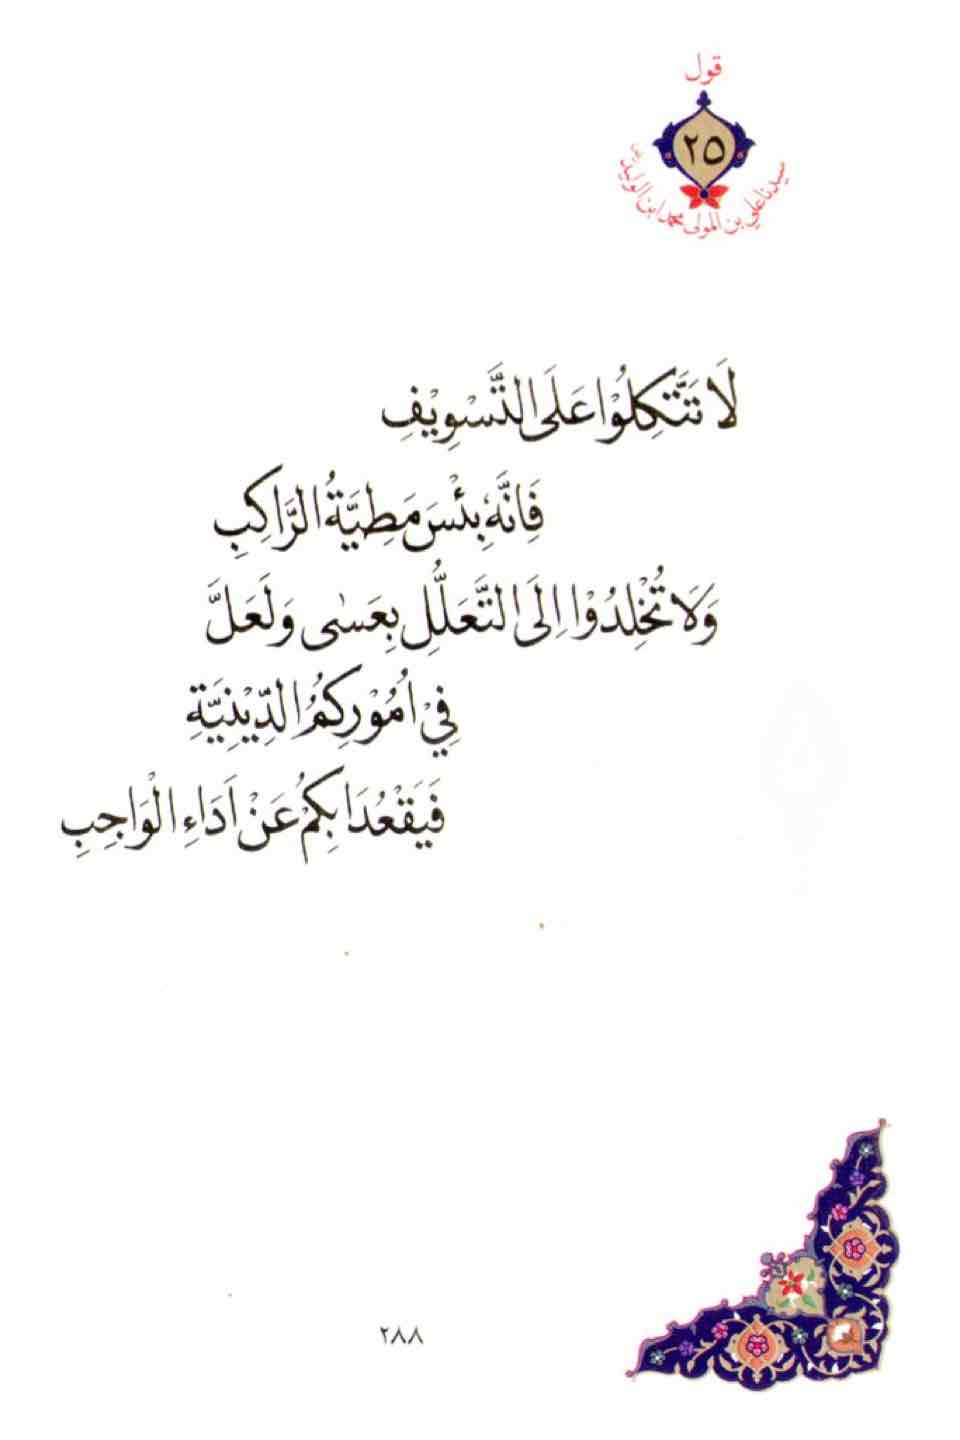 قول
٢٥
سيدنا علي بن المولى محمد ابن الوليد
لَا تَتَّكِلُوْا عَلَى التَّسْوِيْفِ
فَاِنَّهٗ بِئْسَ مَطِيَّةُ الرَّاكِبِ
وَلَا تُخْلِدُوْا اِلَى التَّعَلُّلِ بِعَسٰى وَلَعَلَّ
فِيْ اُمُوْرِكُمُ الدِّيْنِيَّةِ
فَيَقْعُدَا بِكُمْ عَنْ اَدَاءِ الْوَاجِبِ
٢٨٨